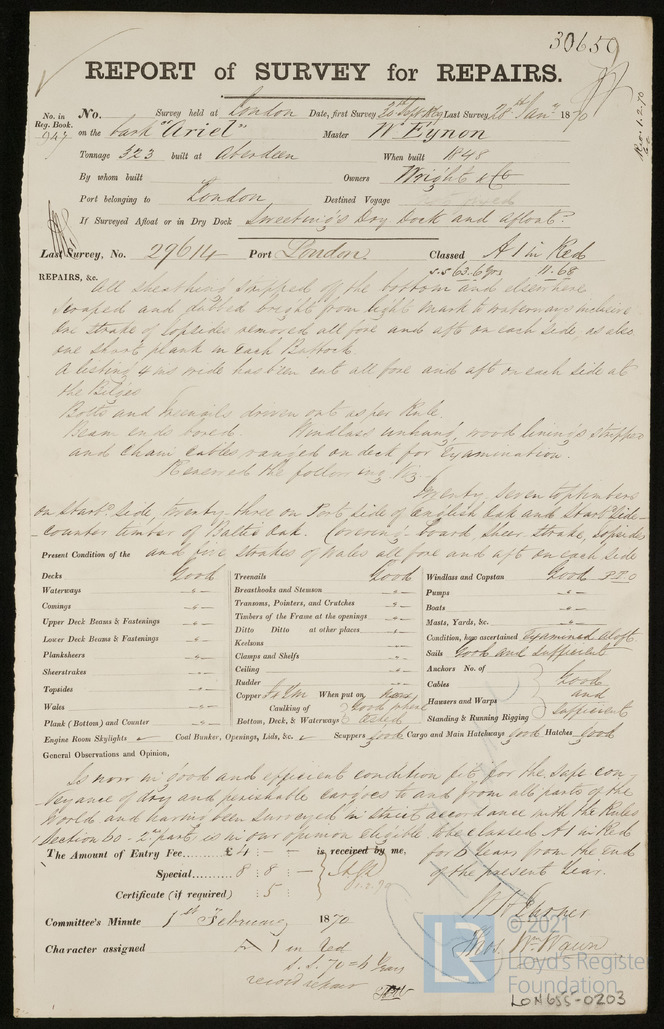 30659
REPORT of SURVEY for REPAIRS.
No. in Reg. Book. No. Survey held at London Date, first Survey Last Survey, 28th Jany 1870
947 on the bark "Ariel" Master W Eynon
Tonnage 323 built at Aberdeen When built 1848
By whom built Owners Wright & Co
Port belonging to London Destined Voyage
If Surveyed Afloat or in Dry Dock Sweeting's Dry Dock and afloat?
Last Survey, No. 29614 Port London Classed A1 in Red
S.S 63.6yrs 11.68
REPAIRS, &c. All sheathing stripped of the bottom and elsewhere
scraped and dubbed bright from light mark to waterways inclusive
One strake of topsides removed all fore and aft on each side, as also
one short plank in each Buttock.
A listing 4 ins wide has been cut all fore and aft on each side at
the Bilges
Bolts and treenails driven out as per Rule
Beam ends bored. Windlass unhung, wood linings stripped
and chain cables ranged on deck for Examination.
Received the following viz
Twenty seven toptimbers
on Starbd. side, twenty three on Port side of English Oak and Starbd Side
counter timber of Baltic Oak. Covering board Sheer strake, topsides
Present Condition of the and five strakes of Wales all fore and aft on each side
Decks Good Treenails Good Windlass and Capstan Good
Waterways -"- Breasthooks and Stemson -"- Pumps -"-
Comings -"- Transoms, Pointers, and Crutches -"- Boats -"-
Upper Deck Beams & Fastenings -"- Timbers of the Frame at the openings -"- Masts, Yards, &c. -"-
Lower Deck Beams & Fastenings -"- Ditto Ditto at other places -"- Condition, how ascertained Examined aloft
Planksheers -"- Keelsons -"- Sails Good and sufficient
Sheerstrakes -"- Clamps and Shelfs -"- Anchors No. of
Topsides -"- Ceiling -"- Cables Good
Wales -"- Rudder -"- Hawsers and Warps and
Plank (Bottom) and Counter -"- Copper When put on Standing & Running Rigging sufficient
Caulking of Good where
Bottom, Deck, & Waterways tested
Engine Room Skylights Coal Bunker, Openings, Lids, &c. Scuppers Good Cargo and Main Hatchways Good Hatches Good
General Observations and Opinion,
Is now in good and efficient condition fit for the safe con-
veyance of dry and perishable cargoes to and from all parts of the
World and having been surveyed in strict accordance with the Rules
Section 60 - 2nd part, is in our opinion eligible to be classed A1 in Red
for 6 Years from the End
of the present Year.
The Amount of Entry Fee...... £4 : - : - is received by me,
Special...... 8 : 8 : -
Certificate (if required) : 5 :
1.2.70
Committee's Minute 1st February 1870
Character assigned A 1 in Red
S.S. 70 = 6 Years
record repair
© 2021
Lloyd's Register
Foundation
LR
LON655-0203